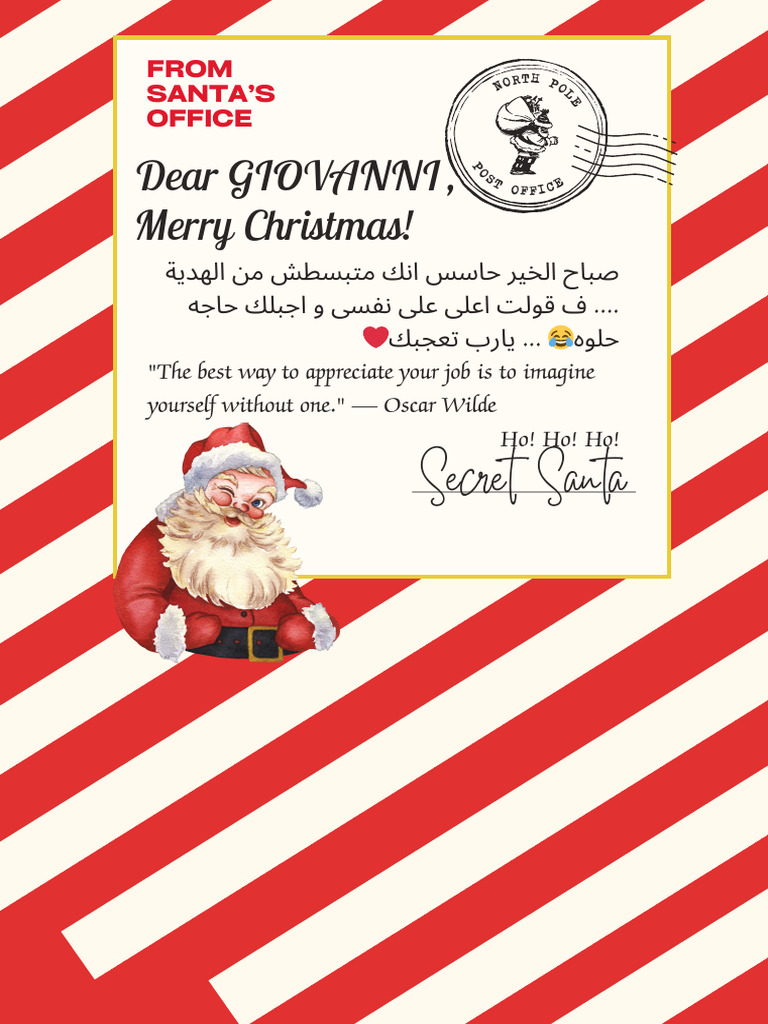 FROM
SANTA'S
OFFICE
NORTH POLE
POST OFFICE
Dear GIOVANNI ,
Merry Christmas!
صباح الخير حاسس انك متبسطش من الهدية
.... ف قولت اعلى على نفسى و اجبلك حاجه
حلوه😂 ... يارب تعجبك❤
"The best way to appreciate your job is to imagine
yourself without one." — Oscar Wilde
Ho! Ho! Ho!
Secret Santa